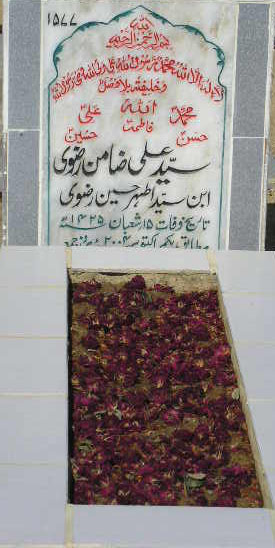 ۱۵۷۷
اللہ
بسم اللہ الرحمن الرحیم
لا الہ الا اللہ محمد رسول اللہ علی ولی اللہ وصی رسول اللہ
وخلیفتہ بلا فصل
محمدؐ اللہ علیؑ
حسنؑ فاطمہؑ حسینؑ
سید علی ضامن رضوی
ابن سید اطہر حسین رضوی
تاریخ وفات ۱۵ شعبان ۱۴۲۵ھ
مطابق یکم اکتوبر ۲۰۰۴ء